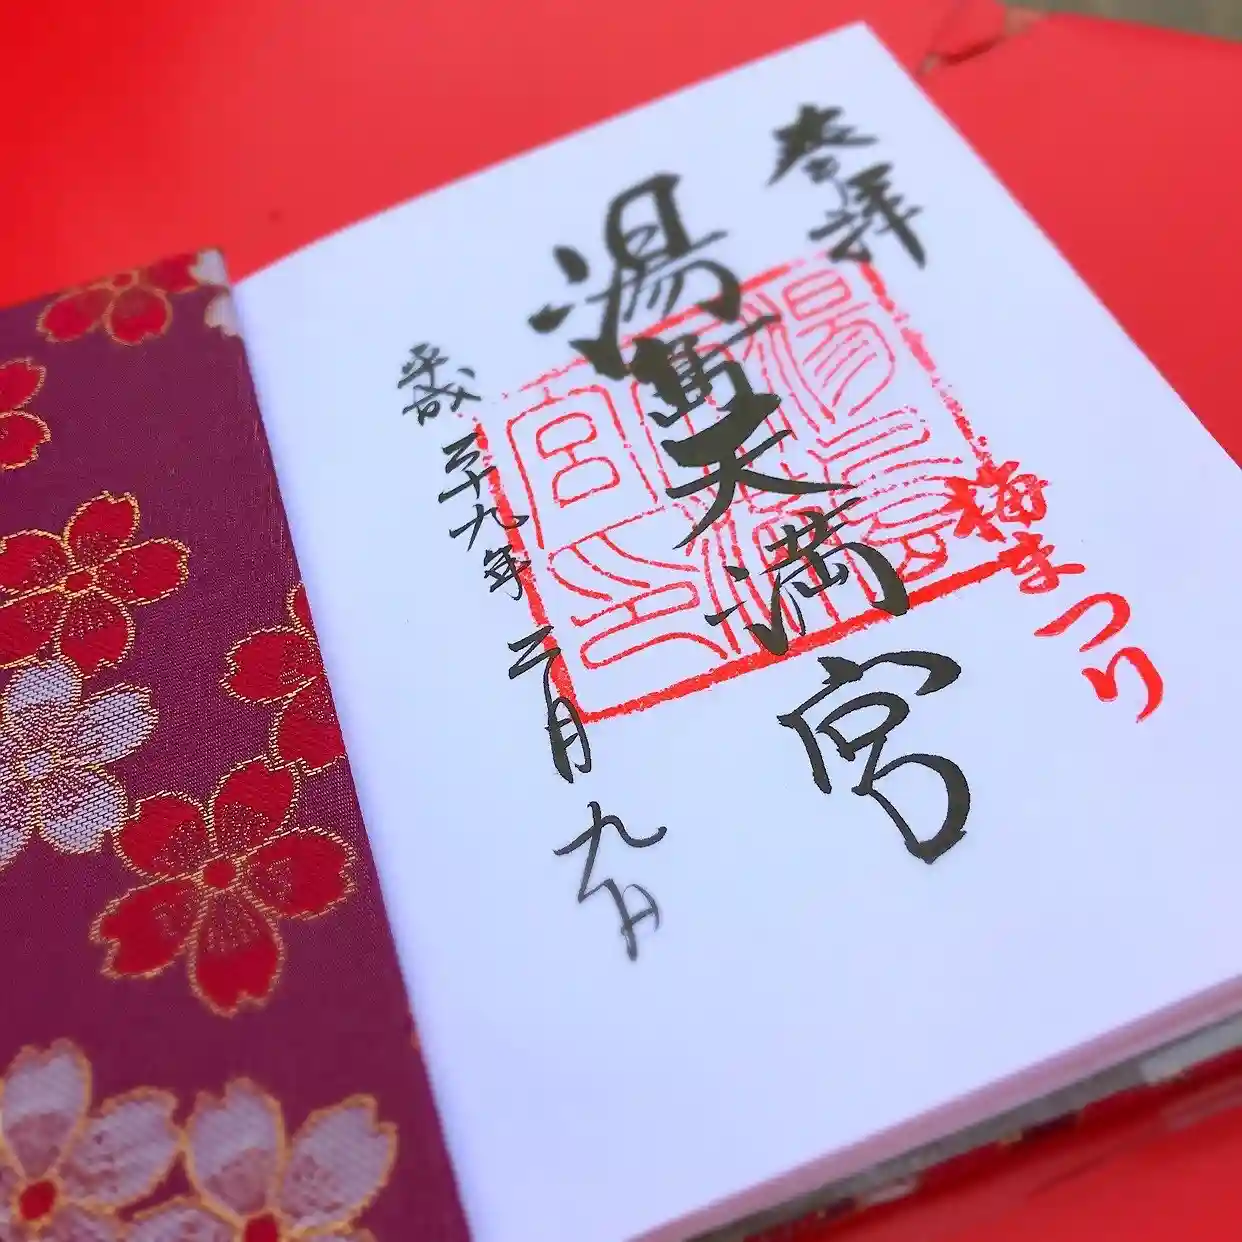 奉拝
梅まつり
湯島天満宮
湯島天満宮印
平成二十九年二月九日